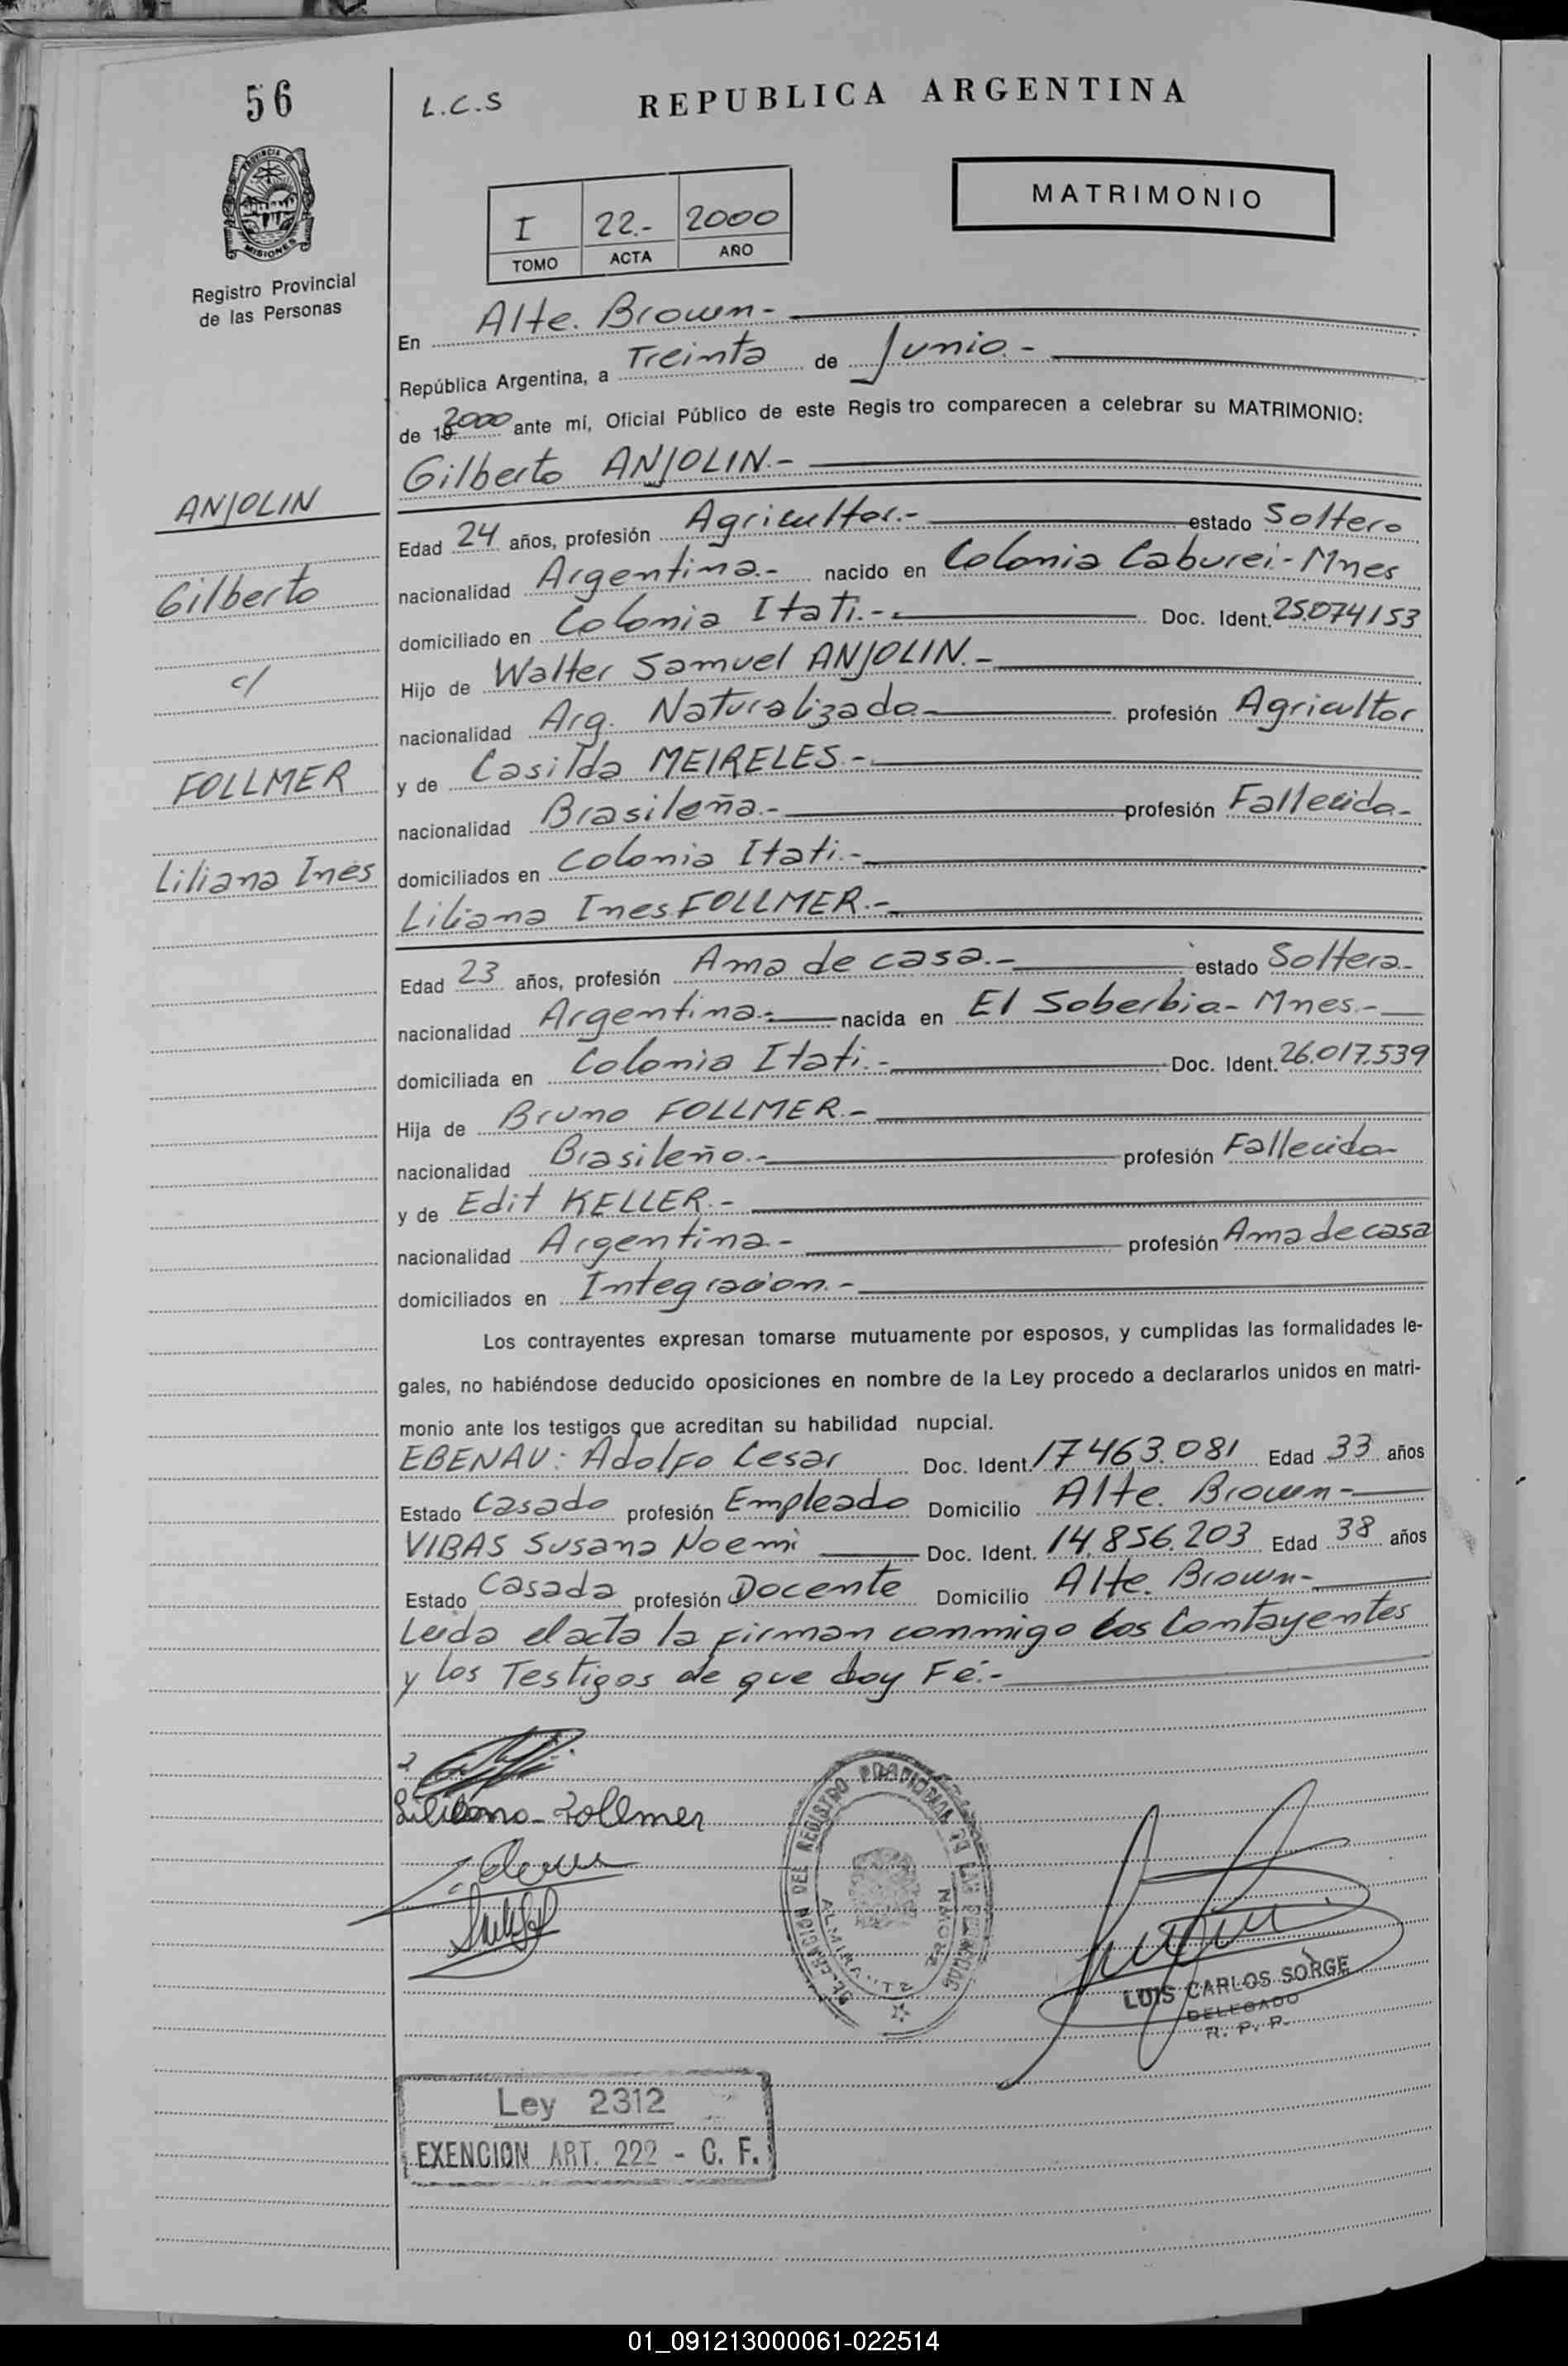 56
L.C.S
REPUBLICA ARGENTINA
PROVINCIA DE
MISIONES
Registro Provincial
de las Personas
MATRIMONIO
I 22.- 2000
TOMO ACTA AÑO
En Alte. Brown.-
República Argentina, a Treinta de Junio.-
de 192000 ante mí, Oficial Público de este Regis tro comparecen a celebrar su MATRIMONIO:
Gilberto ANJOLIN.-
ANJOLIN
Gilberto
c/
FOLLMER
Liliana Inés
Edad 24 años, profesión Agricultor.- estado Soltero
nacionalidad Argentina.- nacido en Colonia Caburei-Mnes
domiciliado en Colonia Itati.- Doc. Ident. 25.074153
Hijo de Walter Samuel ANJOLIN.-
nacionalidad Arg. Naturalizado.- profesión Agricultor
y de Casilda MEIRELES.-
nacionalidad Brasileña.- profesión Fallecida-
domiciliados en Colonia Itati.-
Liliana Ines FOLLMER.-
Edad 23 años, profesión Ama de casa.- estado Soltera-
nacionalidad Argentina.- nacida en El Soberbia- Mnes.-
domiciliada en Colonia Itati.- Doc. Ident. 26.017.539
Hija de Bruno FOLLMER.-
nacionalidad Brasileño.- profesión Fallecido-
y de Edit KELLER.-
nacionalidad Argentina.- profesión Ama de casa
domiciliados en Integracion.-
Los contrayentes expresan tomarse mutuamente por esposos, y cumplidas las formalidades le-
gales, no habiéndose deducido oposiciones en nombre de la Ley procedo a declararlos unidos en matri-
monio ante los testigos que acreditan su habilidad nupcial.
EBENAU: Adolfo Cesar Doc. Ident. 17463.081 Edad 33 años
Estado Casado profesión Empleado Domicilio Alte. Brown-
VIBAS Susana Noemi Doc. Ident. 14.856.203 Edad 38 años
Estado Casada profesión Docente Domicilio Alte. Brown-
Leida el acta la firman conmigo los Contayentes
y los Testigos de que doy Fé.-
Liliana Follmer
DELEGACION DEL REGISTRO PROVINCIAL DE LAS PERSONAS
ALMIRANTE BROWN
LUIS CARLOS SORGE
DELEGADO
R. P. P.
Ley 2312
EXENCION ART. 222 - C. F.
01_091213000061-022514